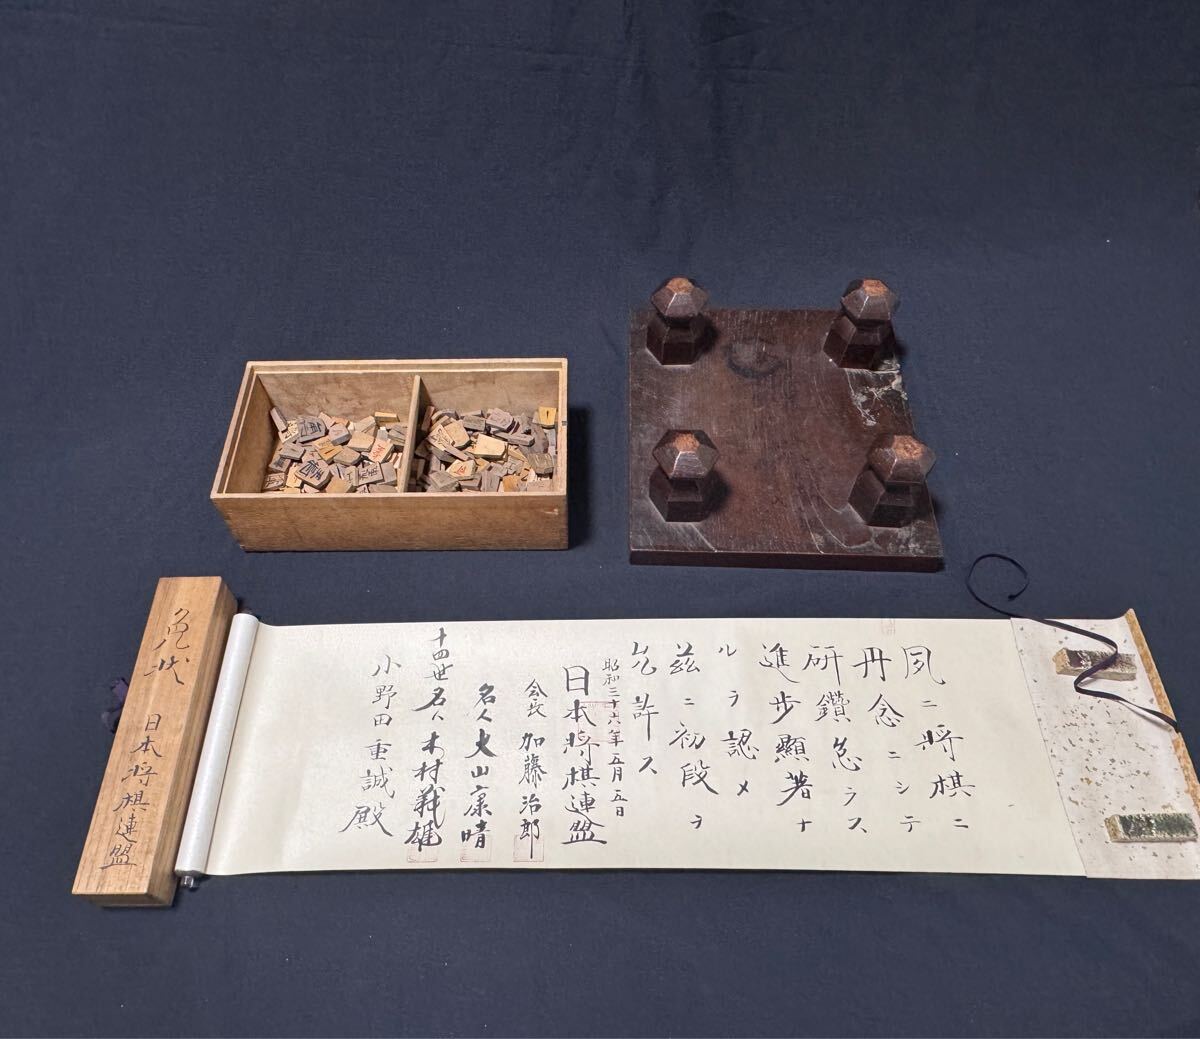 免状 日本将棋連盟
夙ニ将棋ニ
丹念ニシテ
研鑽怠ラス
進歩顯著ナ
ルヲ認メ
茲ニ初段ヲ
允許ス
昭和三十六年五月五日
日本将棋連盟
会長 加藤治郎
名人 大山康晴
十四世名人 木村義雄
小野田重誠殿